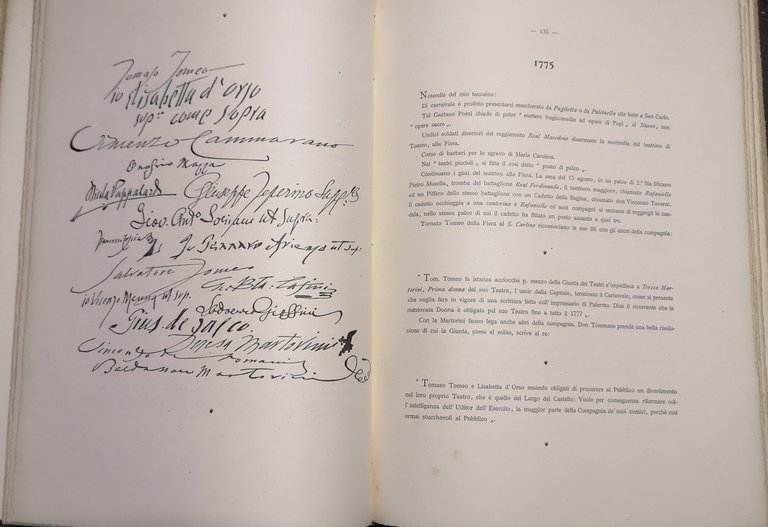 Tomaso Tomeo
io Elisabetta d'orso
supe come sopra
Vincenzo Cammarano
Onofrio Mazza
Giuseppe
Giov. Anto ut supra:
Gennaro ut sup:
Salvatore Tomeo
io Vicenzo ut sup.
Gius. di
Teresa Martorini
Vincenzo
Romani
Baldassare Martorini
— 135 —
1775
Noterelle del mio taccuino:
Di carnevale è proibito presentarsi mascherato da Paglietta o da Pulcinella alle feste a San Carlo.
Tal Gaetano Pozzi chiede di poter " mettere tragicomedie ed opere di Pupi „ al Nuovo, con
" opere sacre „.
Undici soldati disertori del reggimento Real Macedone disarmano la sentinella del teatrino di
Tomeo, alla Fiera.
Corse di barberi per lo sgravo di Maria Carolina.
Nei " teatri piccioli „ si fitta il così detto " posto di palco „.
Continuano i guai del teatrino alla Fiera. La sera del 15 agosto, in un palco di 2.ª fila sificcano
Pietro Musella, tromba del battaglione Real Ferdinando, il tamburo maggiore, chiamato Rafaniello
ed un Piffero dello stesso battaglione con un Cadetto della Regina, chiamato don Vincenzo Taverni.
Il cadetto occhieggia a una canterina e Rafaniello co' suoi compagni si seccano di reggergli la can-
dela, nello stesso palco di cui il cadetto ha fittato un posto accanto a quei tre.
Tornato Tomeo dalla Fiera al S. Carlino ricominciano le sue liti con gli attori della compagnia:
" Tom. Tomeo fa istanza acciocchè p. mezzo della Giunta dei Teatri s'impedisca a Teresa Mar-
torini, Prima donna del suo Teatro, l'uscir dalla Capitale, terminato il Carnevale, come si presente
che voglia fare in vigore di una scrittura fatta coll'impressario di Palermo. Dice il ricorrente che la
mentovata Donna è obligata pel suo Teatro fino a tutto il 1777 „.
Con la Martorini fanno lega anche altri della compagnia. Don Tommaso prende una bella risolu-
zione di cui la Giunta, come al solito, scrive al re:
" Tomaso Tomeo e Lisabetta d'Orso essendo obligati di procurare al Pubblico un divertimento
nel loro proprio Teatro, che è quello del Largo del Castello: Vuole per conseguenza riformare col-
l'intelligenza dell'Uditor dell'Esercito, la maggior parte della Compagnia de' suoi comici, perchè resi
ormai stucchevoli al Pubblico „.